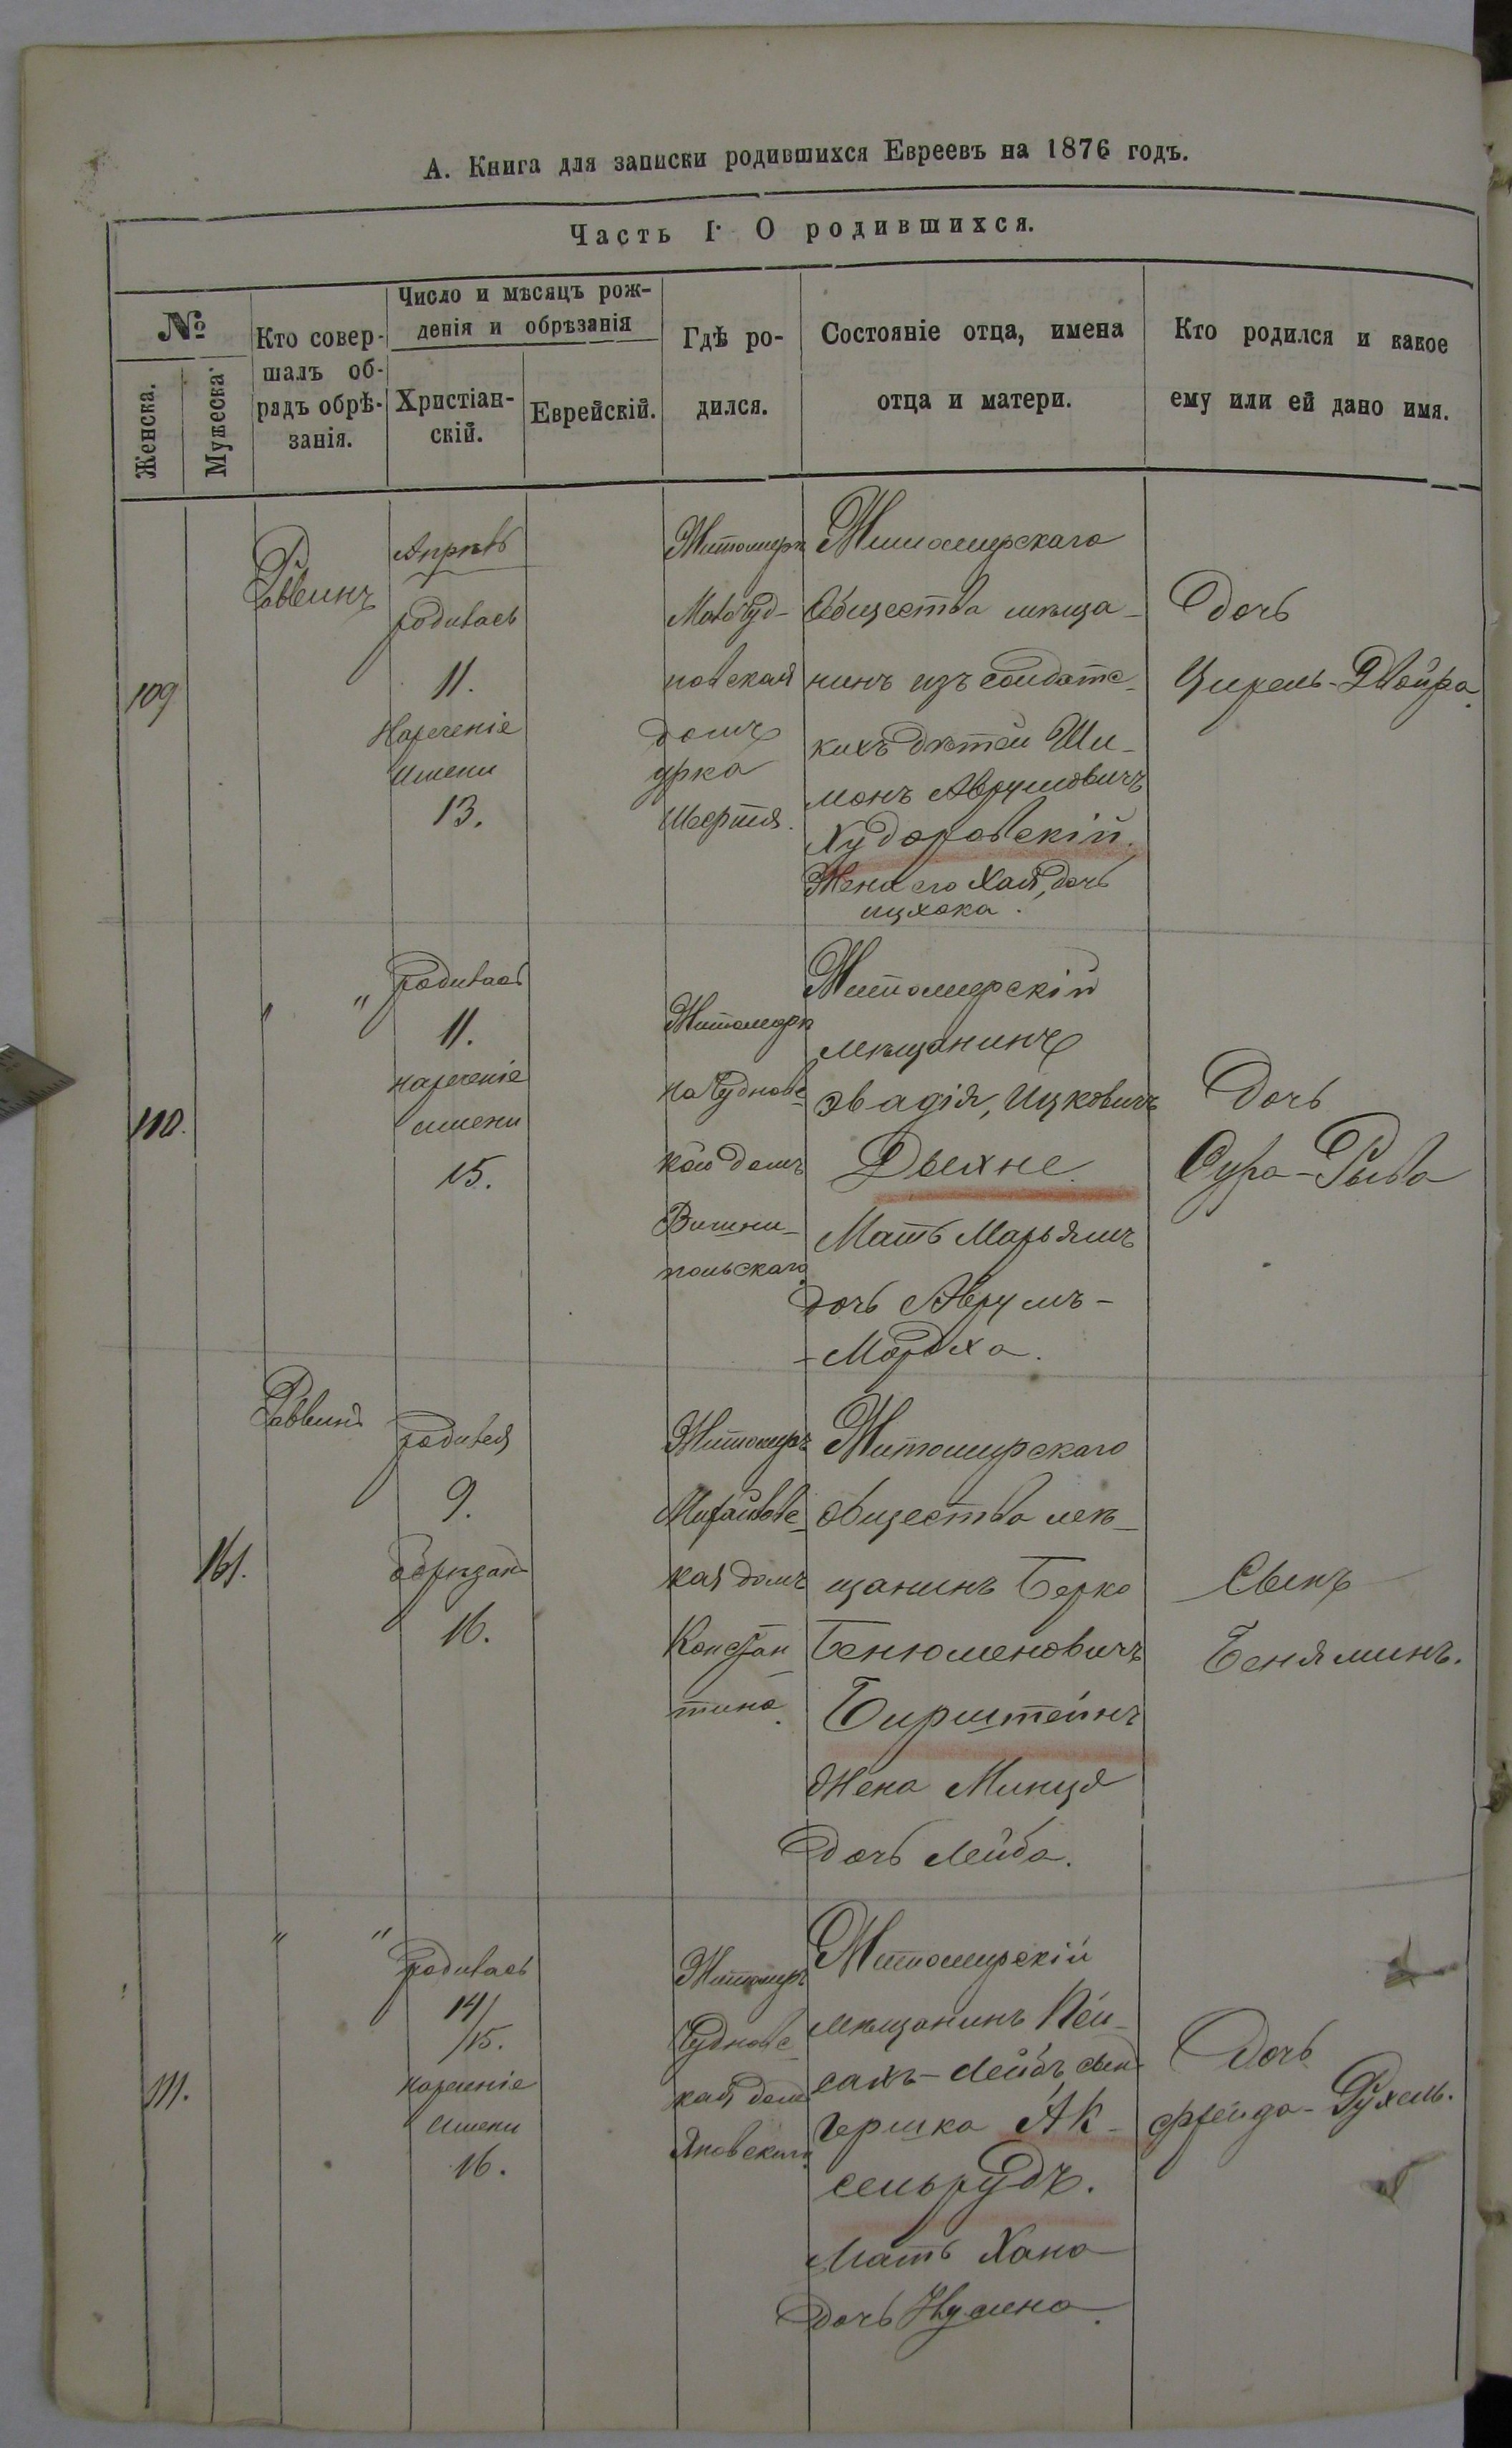 А. Книга для записки родившихся Евреевъ на 1876 годъ.
Часть I. О родившихся.
№
Женска.
Мужеска
Кто совер-
шалъ об-
рядъ обрѣ-
занія.
Число и мѣсяцъ рож-
денія и обрѣзанія
Христіан-
скій.
Еврейскій.
Гдѣ ро-
дился.
Состояніе отца, имена
отца и матери.
Кто родился и какое
ему или ей дано имя.
109
Раввинъ
Апрѣль
родилась
11.
Нареченіе
имени
13.
Житомиръ
Малочуд-
новская
домъ
Урка
Житомирскаго
Общества мѣща-
нинъ изъ солдатс-
кихъ дѣтей Ши-
монъ Аврумовичъ
Худоровскій.
Жена его Хая, дочь
Ицхока.
Дочь
Цирель-Двойра.
110.
" "
родилась
11.
нареченіе
имени
15.
Житомиръ
на Чудновс-
кой домъ
Вишни-
польскаго
Житомирскій
мѣщанинъ
Овадія, Ицковичъ
Дыхне.
Мать Марьямъ
дочь Аврумъ-
-Мордха.
Дочь
Сура-Рыва
161.
Раввинъ
родился
9.
обрѣзанъ
16.
Житомиръ
Михайловс-
кая домъ
Констан-
тина.
Житомирскаго
общества мѣ-
щанинъ Берко
Бенюменовичъ
Бирштейнъ
Жена Минця
дочь Лейба.
Сынъ
Беняминъ.
111.
" "
родилась
14/
/15.
нареченіе
имени
16.
Житомиръ
Чудновс-
кая домъ
Яновскаго
Житомирскій
мѣщанинъ Пей-
сахъ-Лейбъ, сынъ
Гершка Ак-
сельрудъ.
Мать Хана
дочь Нусина.
Дочь
Фрейда-Рухель.